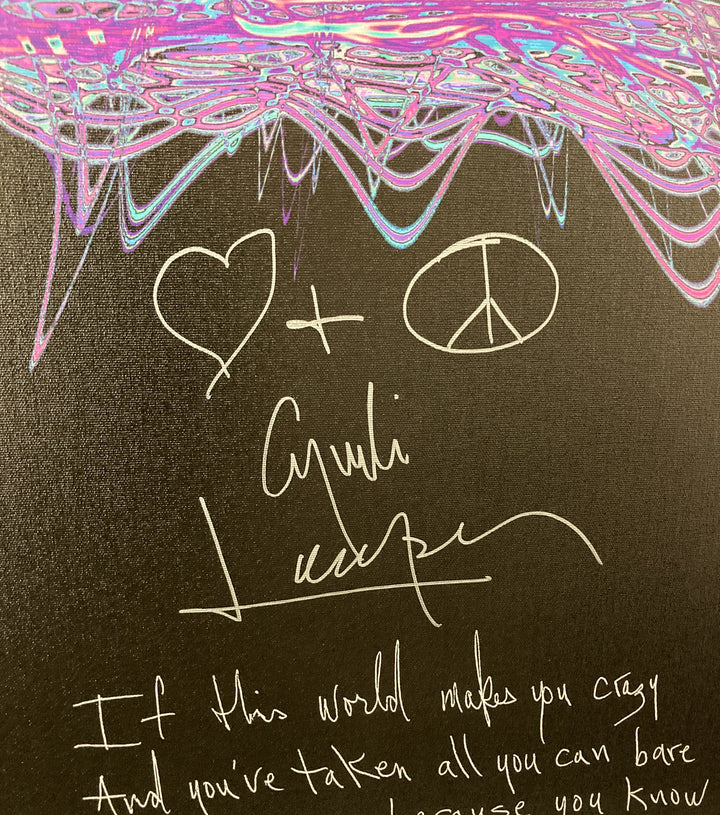 +
Cyndi
Lauper
If this world makes you crazy
And you've taken all you can bare
because you know